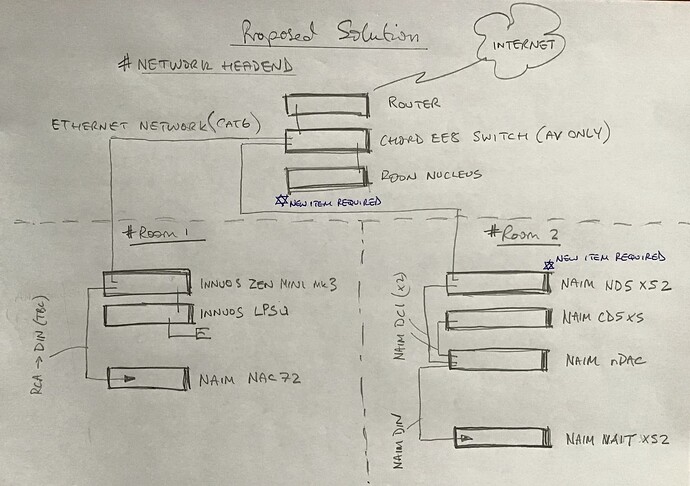 Proposed Solution
INTERNET
# NETWORK HEADEND
ROUTER
ETHERNET NETWORK (CAT6)
CHORD EE8 SWITCH (AV ONLY)
ROON NUCLEUS
NEW ITEM REQUIRED
# Room 1
# Room 2
NEW ITEM REQUIRED
INNUOS ZEN MINI MK3
NAIM ND5 XS2
INNUOS LPSU
NAIM CD5 XS
RCA → DIN (TBC)
NAIM DC1 (x2)
NAIM nDAC
NAIM NAC72
NAIM DIN
NAIM NAIT XS2